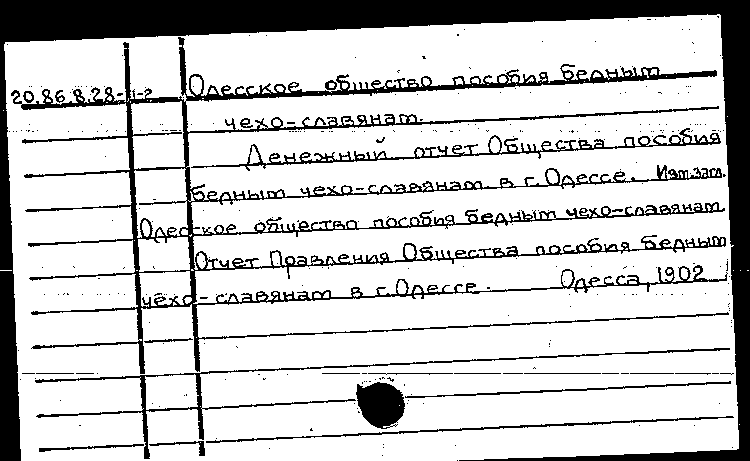 20.86.8.28-1-2 Одесское общество пособия бедным
чехо-славянам.
Денежный отчет Общества пособия
бедным чехо-славянам в г. Одессе. Изм.загл.
Одесское общество пособия бедным чехо-славянам
Отчет Правления Общества пособия бедным
чехо-славянам в г. Одессе. Одесса, 1902